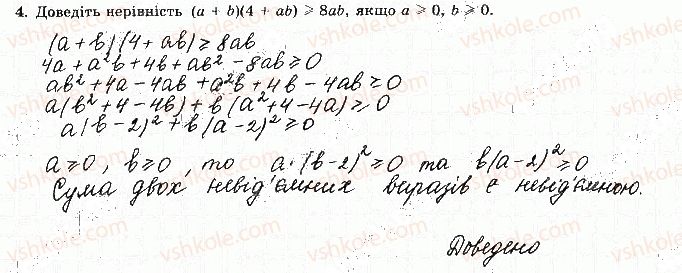 4. Доведіть нерівність (a + b)(4 + ab) ⩾ 8ab, якщо a ⩾ 0, b ⩾ 0.
(a + b)(4 + ab) ≥ 8ab
4a + a²b + 4b + ab² - 8ab ≥ 0
ab² + 4a - 4ab + a²b + 4b - 4ab ≥ 0
a(b² + 4 - 4b) + b(a² + 4 - 4a) ≥ 0
a(b - 2)² + b(a - 2)² ≥ 0
a ≥ 0, b ≥ 0, то a·(b - 2)² ≥ 0 та b(a - 2)² ≥ 0
Сума двох невід'ємних виразів є невід'ємною.
Доведено
vshkole.com